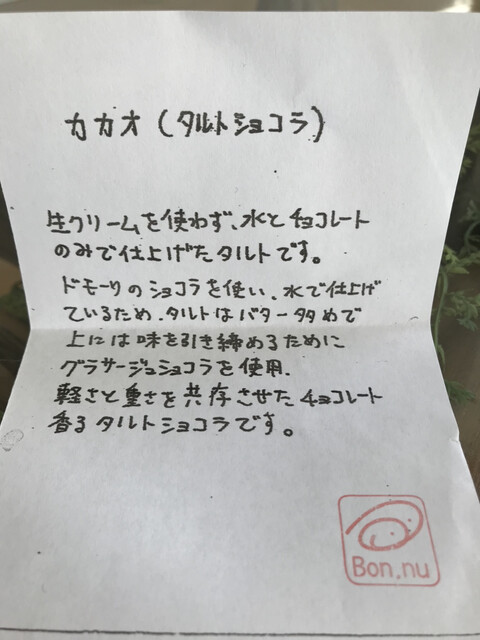 カカオ(タルトショコラ)
生クリームを使わず、水とチョコレート
のみで仕上げたタルトです。
ドモーリのショコラを使い、水で仕上げ
ているため、タルトはバター多めで
上には味を引き締めるために
グラサージュショコラを使用、
軽さと重さを共存させたチョコレート
香るタルトショコラです。
Bon.nu